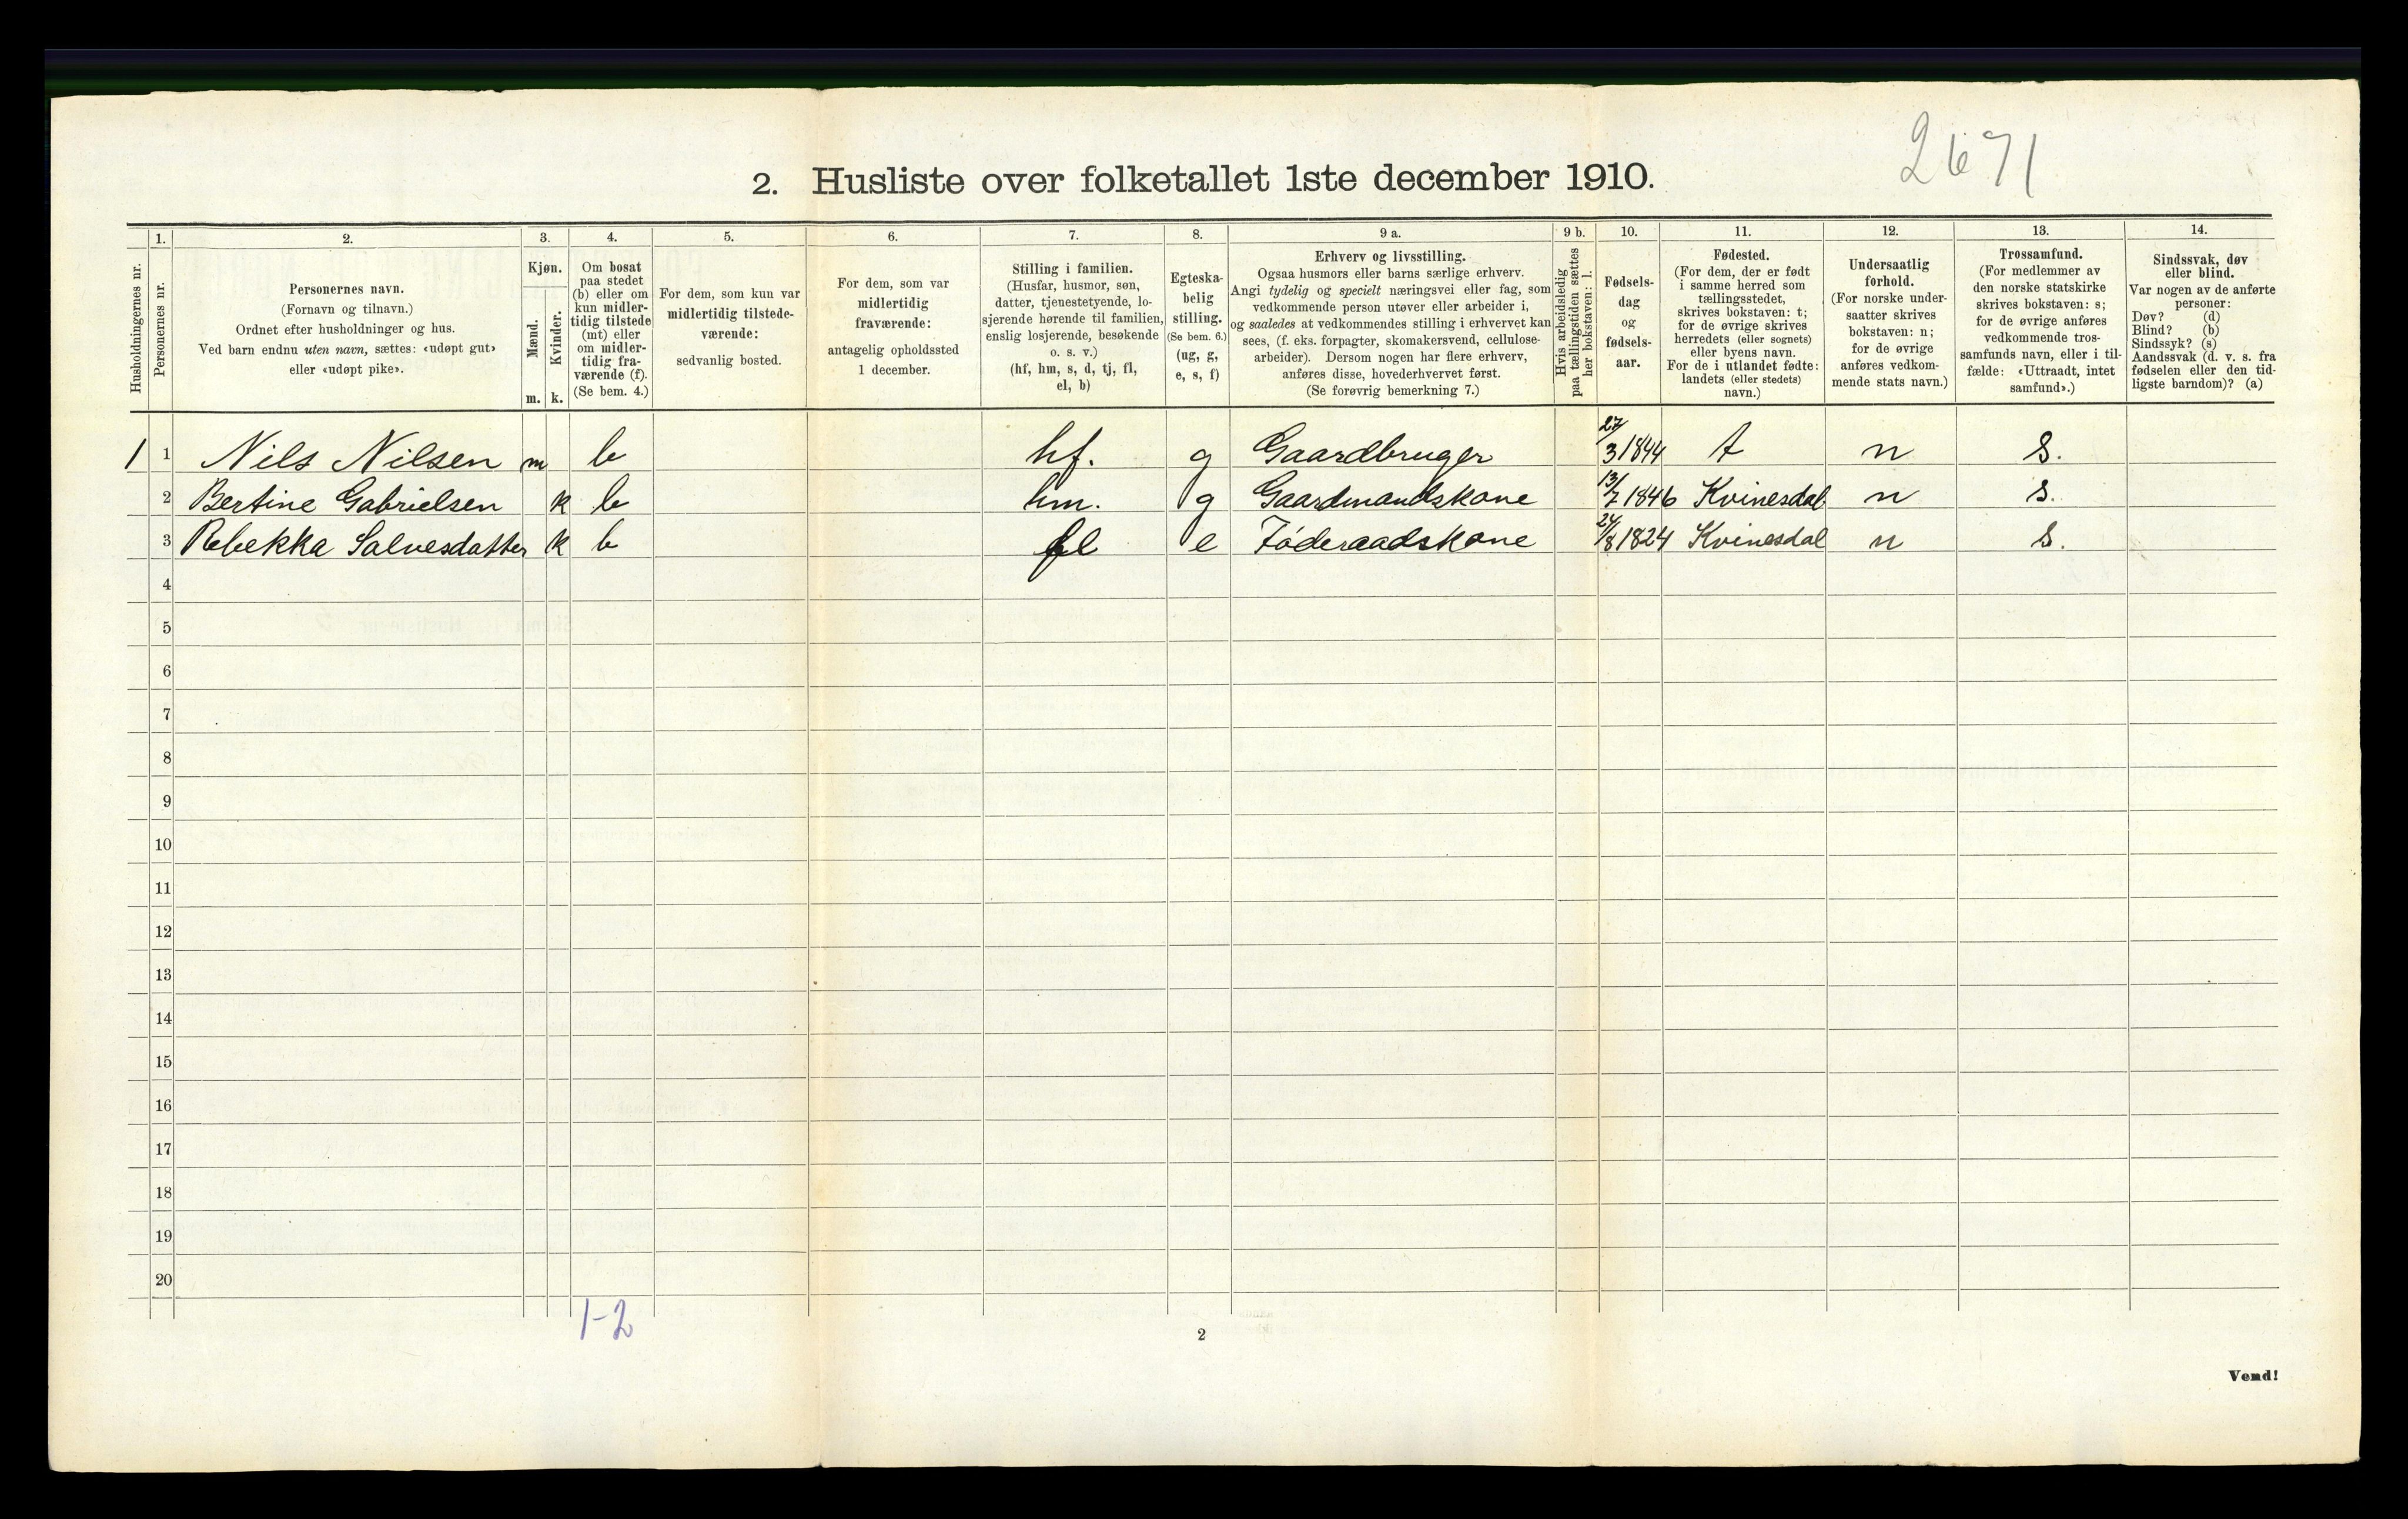 2671
2. Husliste over folketallet 1ste december 1910.
Husholdningernes nr.
1.
Personernes nr.
2.
Personernes navn.
(Fornavn og tilnavn.)
Ordnet efter husholdninger og hus.
Ved barn endnu uten navn, sættes: «udøpt gut»
eller «udøpt pike».
3.
Kjøn.
Mænd.
m.
Kvinder.
k.
4.
Om bosat
paa stedet
(b) eller om
kun midler-
tidig tilstede
(mt) eller
om midler-
tidig fra-
værende (f).
(Se bem. 4.)
5.
For dem, som kun var
midlertidig tilstede-
værende:
sedvanlig bosted.
6.
For dem, som var
midlertidig
fraværende:
antagelig opholdssted
1 december.
7.
Stilling i familien.
(Husfar, husmor, søn,
datter, tjenestetyende, lo-
sjerende hørende til familien,
enslig losjerende, besøkende
o. s. v.)
(hf, hm, s, d, tj, fl,
el, b)
8.
Egteska-
belig
stilling.
(Se bem. 6.)
(ug, g,
e, s, f)
9 a.
Erhverv og livsstilling.
Ogsaa husmors eller barns særlige erhverv.
Angi tydelig og specielt næringsvei eller fag, som
vedkommende person utøver eller arbeider i,
og saaledes at vedkommendes stilling i erhvervet kan
sees, (f. eks. forpagter, skomakersvend, cellulose-
arbeider). Dersom nogen har flere erhverv,
anføres disse, hovederhvervet først.
(Se forøvrig bemerkning 7.)
9 b.
Hvis arbeidsledig
paa tællingstiden sættes
her bokstaven: l.
10.
Fødsels-
dag
og
fødsels-
aar.
11.
Fødested.
(For dem, der er født
i samme herred som
tællingsstedet,
skrives bokstaven: t;
for de øvrige skrives
herredets (eller sognets)
eller byens navn.
For de i utlandet fødte:
landets (eller stedets)
navn.)
12.
Undersaatlig
forhold.
(For norske under-
saatter skrives
bokstaven: n;
for de øvrige
anføres vedkom-
mende stats navn.)
13.
Trossamfund.
(For medlemmer av
den norske statskirke
skrives bokstaven: s;
for de øvrige anføres
vedkommende tros-
samfunds navn, eller i til-
fælde: «Uttraadt, intet
samfund».)
14.
Sindssvak, døv
eller blind.
Var nogen av de anførte
personer:
Døv? (d)
Blind? (b)
Sindssyk? (s)
Aandssvak (d. v. s. fra
fødselen eller den tid-
ligste barndom)? (a)
1 1 Nils Nilsen m b hf. g Gaardbruger 27/3 1844 t n s.
2 Bertine Gabrielsen k b hm. g Gaardmandskone 13/7 1846 Kvinesdal n s.
3 Rebekka Salvesdatter k b fl e Føderaadskone 24/8 1824 Kvinesdal n s.
4
5
6
7
8
9
10
11
12
13
14
15
16
17
18
19
20
1-2
2
Vend!